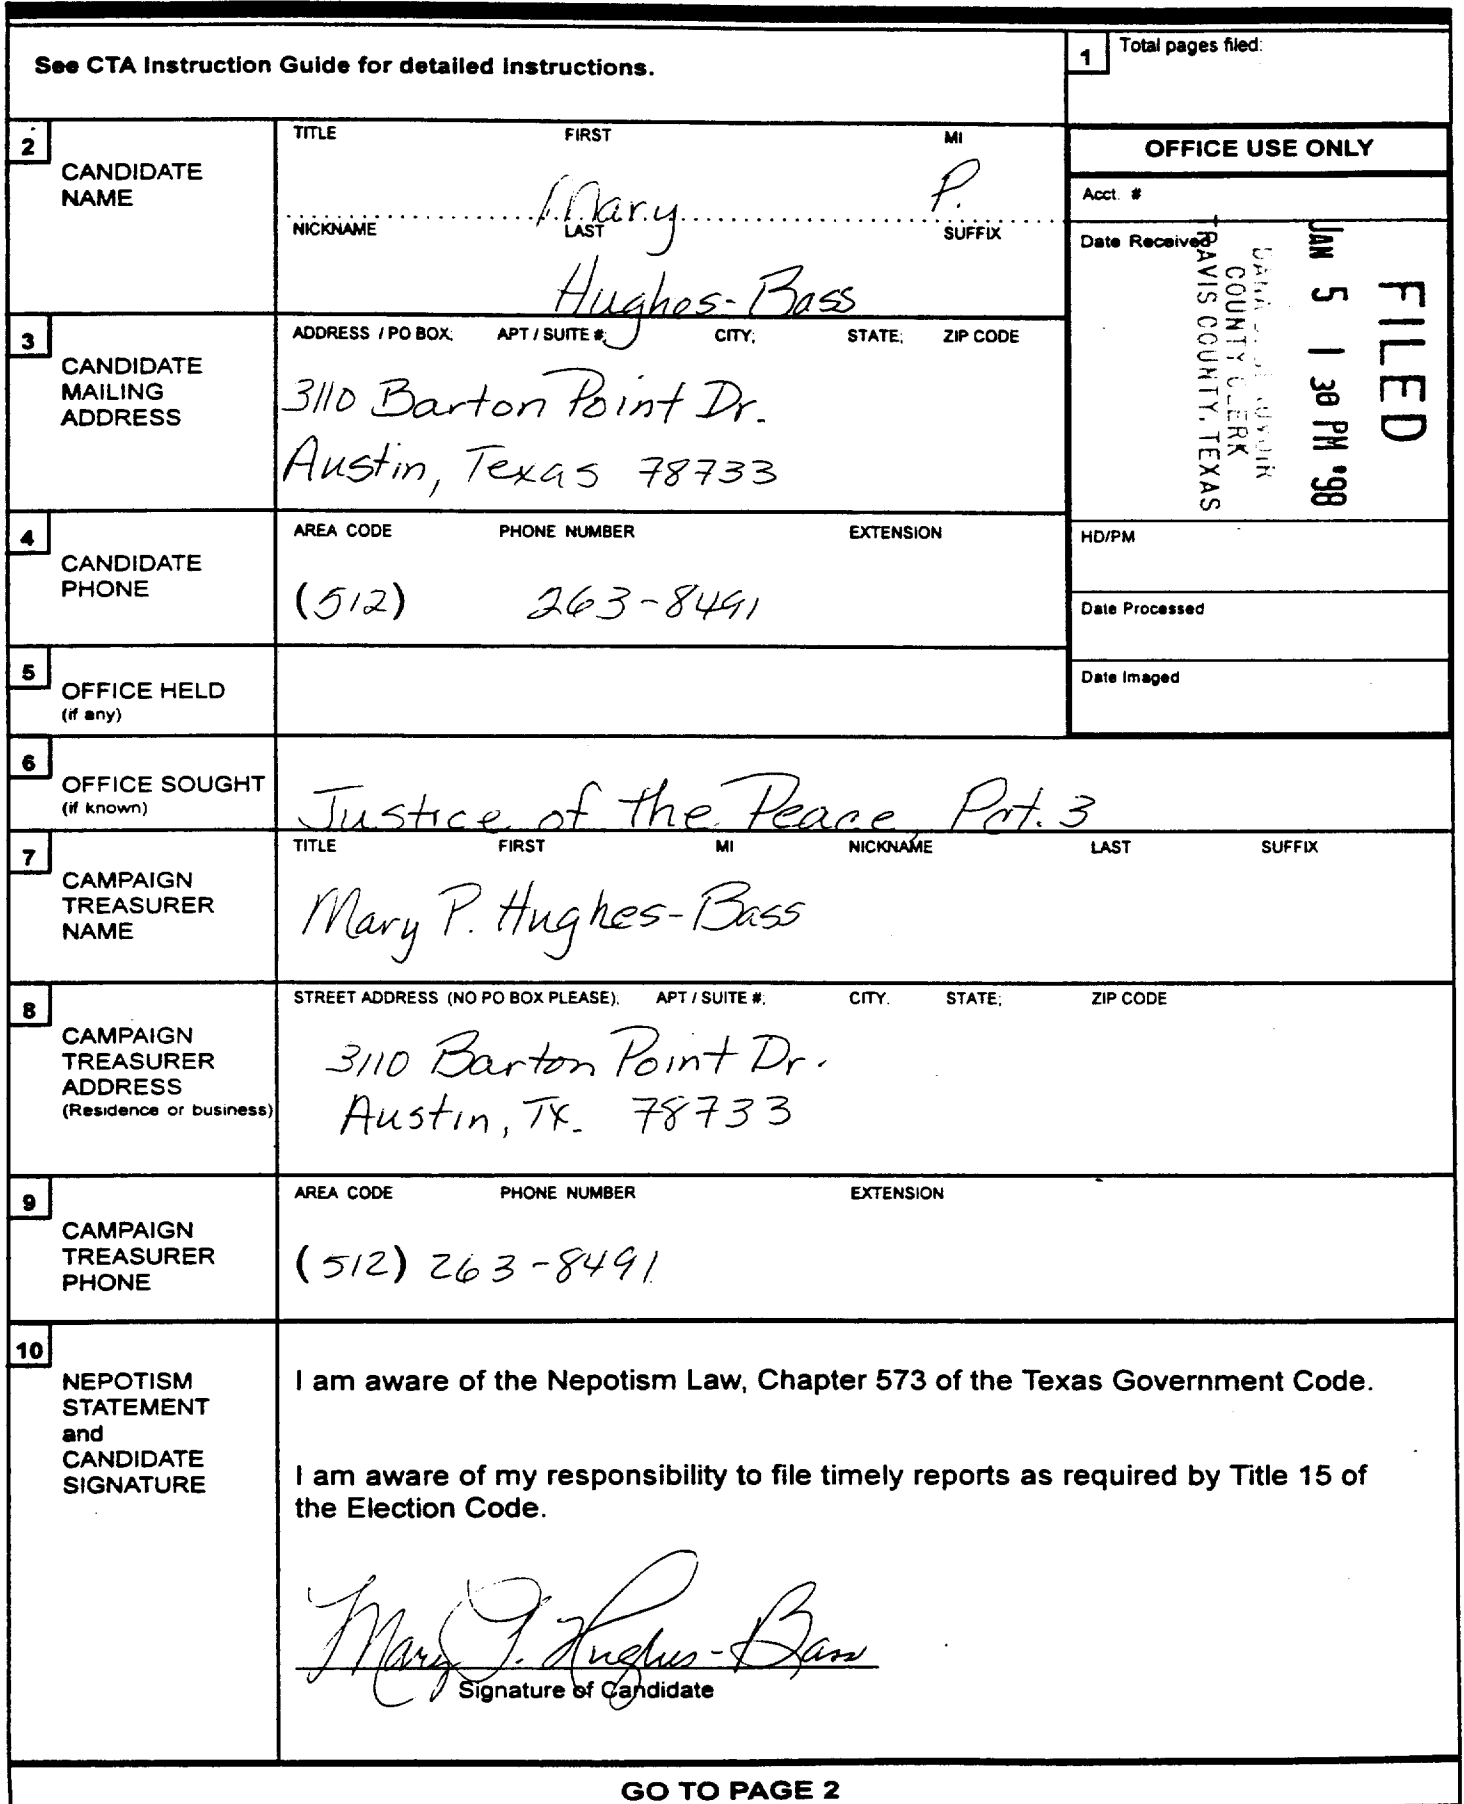 See CTA Instruction Guide for detailed Instructions.
1 Total pages filed:
2 CANDIDATE NAME
TITLE FIRST MI
Mary P.
NICKNAME LAST SUFFIX
Hughes-Bass
OFFICE USE ONLY
Acct. #
Date Received
FILED
JAN 5 1 30 PM '98
COUNTY CLERK
TRAVIS COUNTY, TEXAS
3 CANDIDATE MAILING ADDRESS
ADDRESS / PO BOX; APT / SUITE #; CITY; STATE; ZIP CODE
3110 Barton Point Dr.
Austin, Texas 78733
4 CANDIDATE PHONE
AREA CODE PHONE NUMBER EXTENSION
(512) 263-8491
HD/PM
Date Processed
Date Imaged
5 OFFICE HELD
(if any)
6 OFFICE SOUGHT
(if known)
Justice of the Peace, Pct. 3
7 CAMPAIGN TREASURER NAME
TITLE FIRST MI NICKNAME LAST SUFFIX
Mary P. Hughes-Bass
8 CAMPAIGN TREASURER ADDRESS
(Residence or business)
STREET ADDRESS (NO PO BOX PLEASE); APT / SUITE #; CITY. STATE; ZIP CODE
3110 Barton Point Dr.
Austin, TX. 78733
9 CAMPAIGN TREASURER PHONE
AREA CODE PHONE NUMBER EXTENSION
(512) 263-8491
10 NEPOTISM STATEMENT and CANDIDATE SIGNATURE
I am aware of the Nepotism Law, Chapter 573 of the Texas Government Code.
I am aware of my responsibility to file timely reports as required by Title 15 of
the Election Code.
Mary P. Hughes-Bass
Signature of Candidate
GO TO PAGE 2